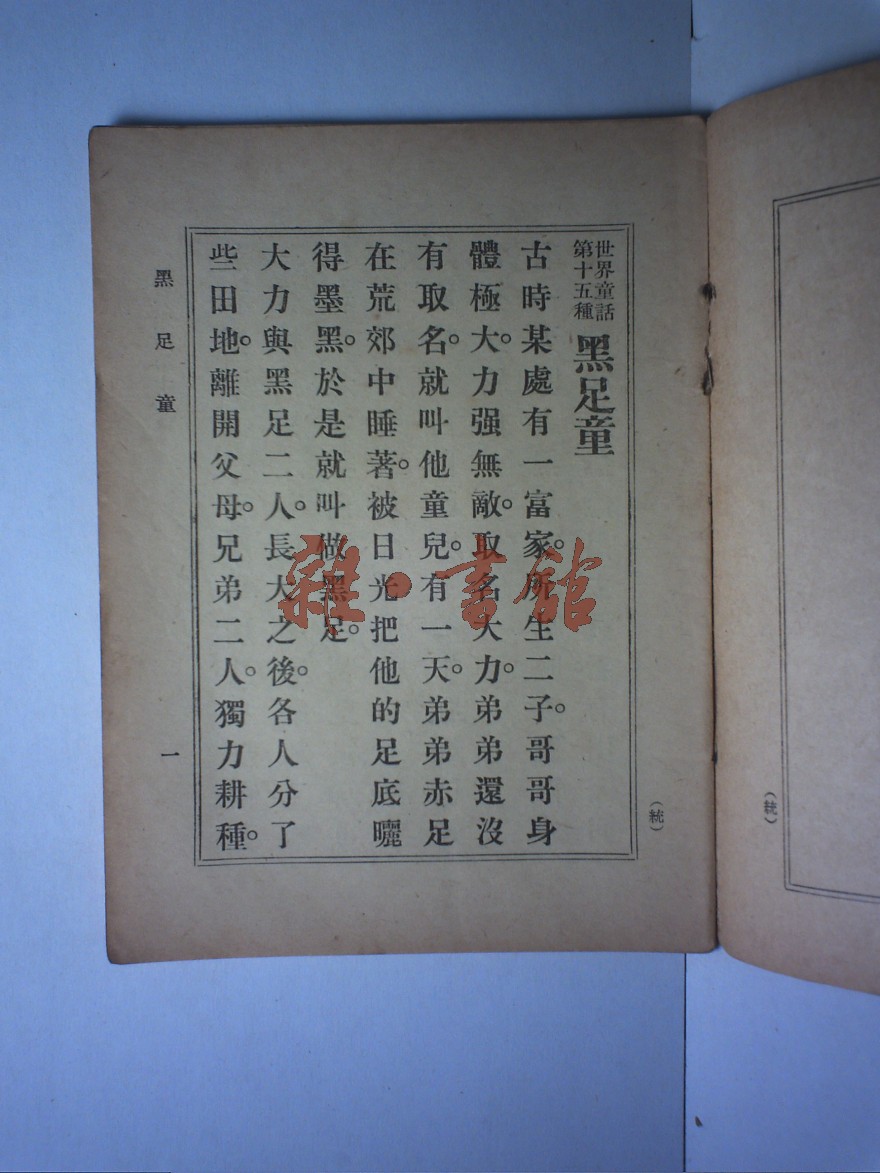 世界童話
第十五種
黑足童
古時某處有一富家。所生二子。哥哥身
體極大。力强無敵。取名大力。弟弟還沒
有取名。就叫他童兒。有一天。弟弟赤足
在荒郊中睡著。被日光把他的足底曬
得墨黑。於是就叫做黑足。
大力與黑足二人。長大之後。各人分了
些田地。離開父母。兄弟二人。獨力耕種。
黑足童
一
(統)
(統)
雜·書館